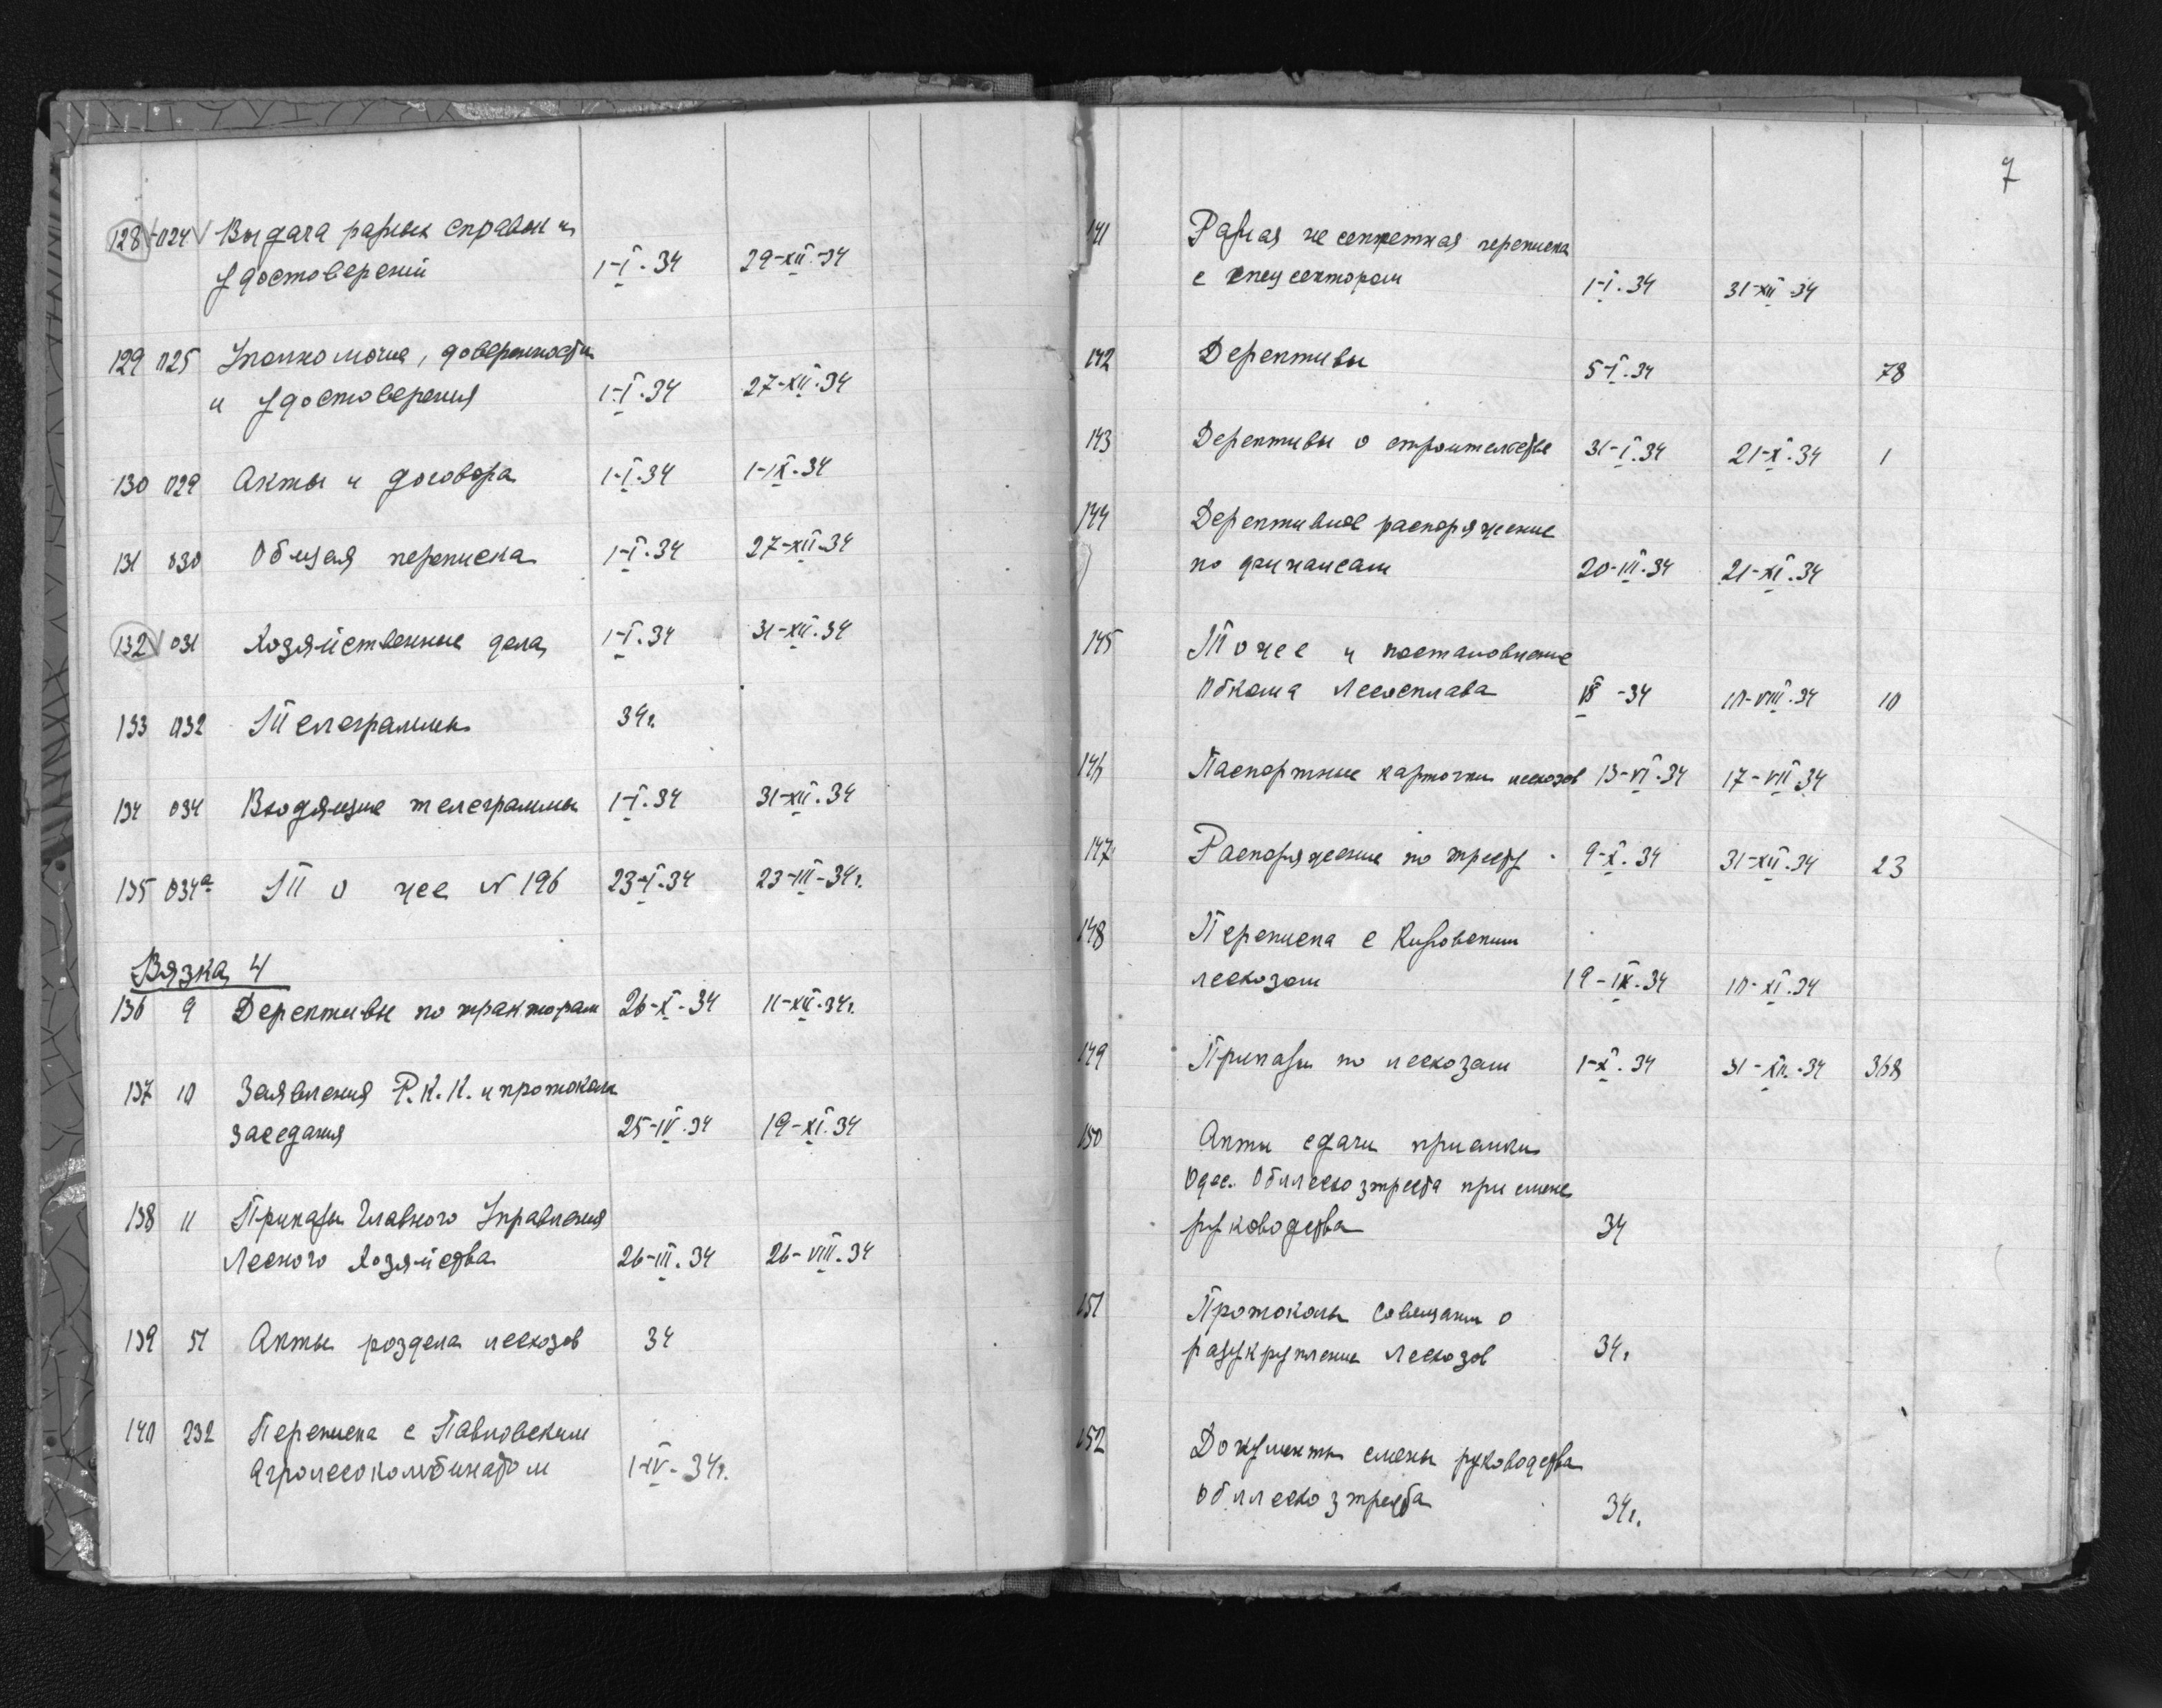 128 024 Выдача разных справок и
удостоверений 1-I-34 29-XII-34
129 025 Уполномочия, доверенности
и удостоверения 1-I-34 27-XII-34
130 029 Акты и договора 1-I-34 1-IX-34
131 030 Общая переписка 1-I-34 27-XII-34
132 031 Хозяйственные дела 1-I-34 31-XII-34
133 032 Телеграммы 34г.
134 034 Входящие телеграммы 1-I-34 31-XII-34
135 034а То же N 196 23-I-34 23-III-34г.
Вязка 4
136 9 Дерективы по тракторам 26-X-34 11-XII-34г.
137 10 Заявления Р.К.К. и протоколы
заседания 25-IV-34 19-XI-34
138 11 Приказы Главного Управления
Лесного Хозяйства 26-III-34 26-VIII-34
139 51 Акты роздела лесхозов 34
140 232 Переписка с Павловским
Агролесокомбинатом 1-IV-34г.
7
141 Разная не секретная переписка
с спецсектором 1-I-34 31-XII-34
142 Дерективы 5-I-34 78
143 Дерективы о строительстве 31-I-34 21-X-34 1
144 Дерективное распоряжение
по финансам 20-III-34 21-XI-34
145 То же и постановление
Обкома Лесосплава -34 10-VIII-34 10
146 Паспортные карточки лесхозов 13-VI-34 17-VII-34
147 Распоряжение по тресту 9-X-34 31-XII-34 23
148 Переписка с Кировским
лесхозом 19-IX-34 10-XI-34
149 Приказы по лесхозам 1-X-34 31-XII-34 368
150 Акты сдачи приемки
Одес. Обллесхозтреста при смене
руководства 34
151 Протоколы Совещания о
разукрупление Лесхозов 34г.
152 Документы смены руководства
Обллесхозтреста 34г.